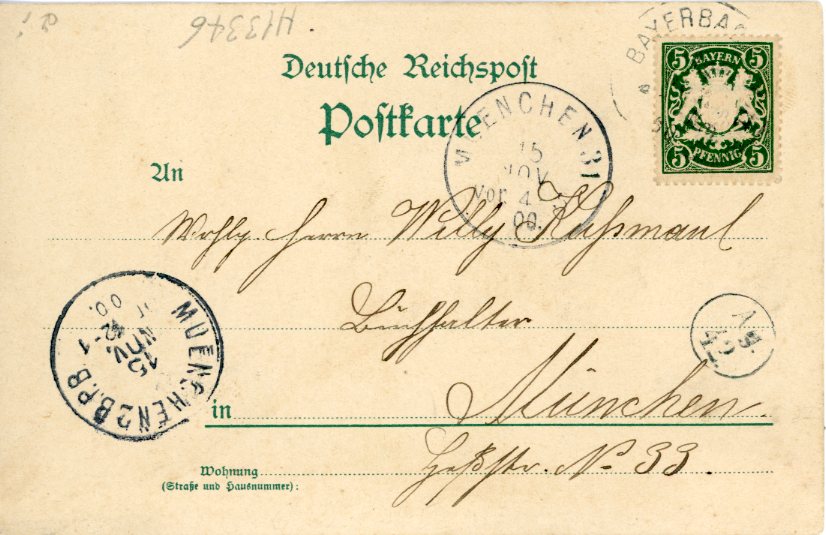 H13346
BAYERBAC
BAYERN
5 5
5 PFENNIG 5
Deutsche Reichspost
Postkarte
MUENCHEN 31
15
NOV
Vor 4-5
00.
An
Wohlg. Herrn Willy Kußmaul
Buchhalter
MUENCHEN 2 B.P.B
15
NOV.
12-1
00.
Ag.
42
in München.
Heßstr. No 33.
Wohnung
(Straße und Hausnummer):